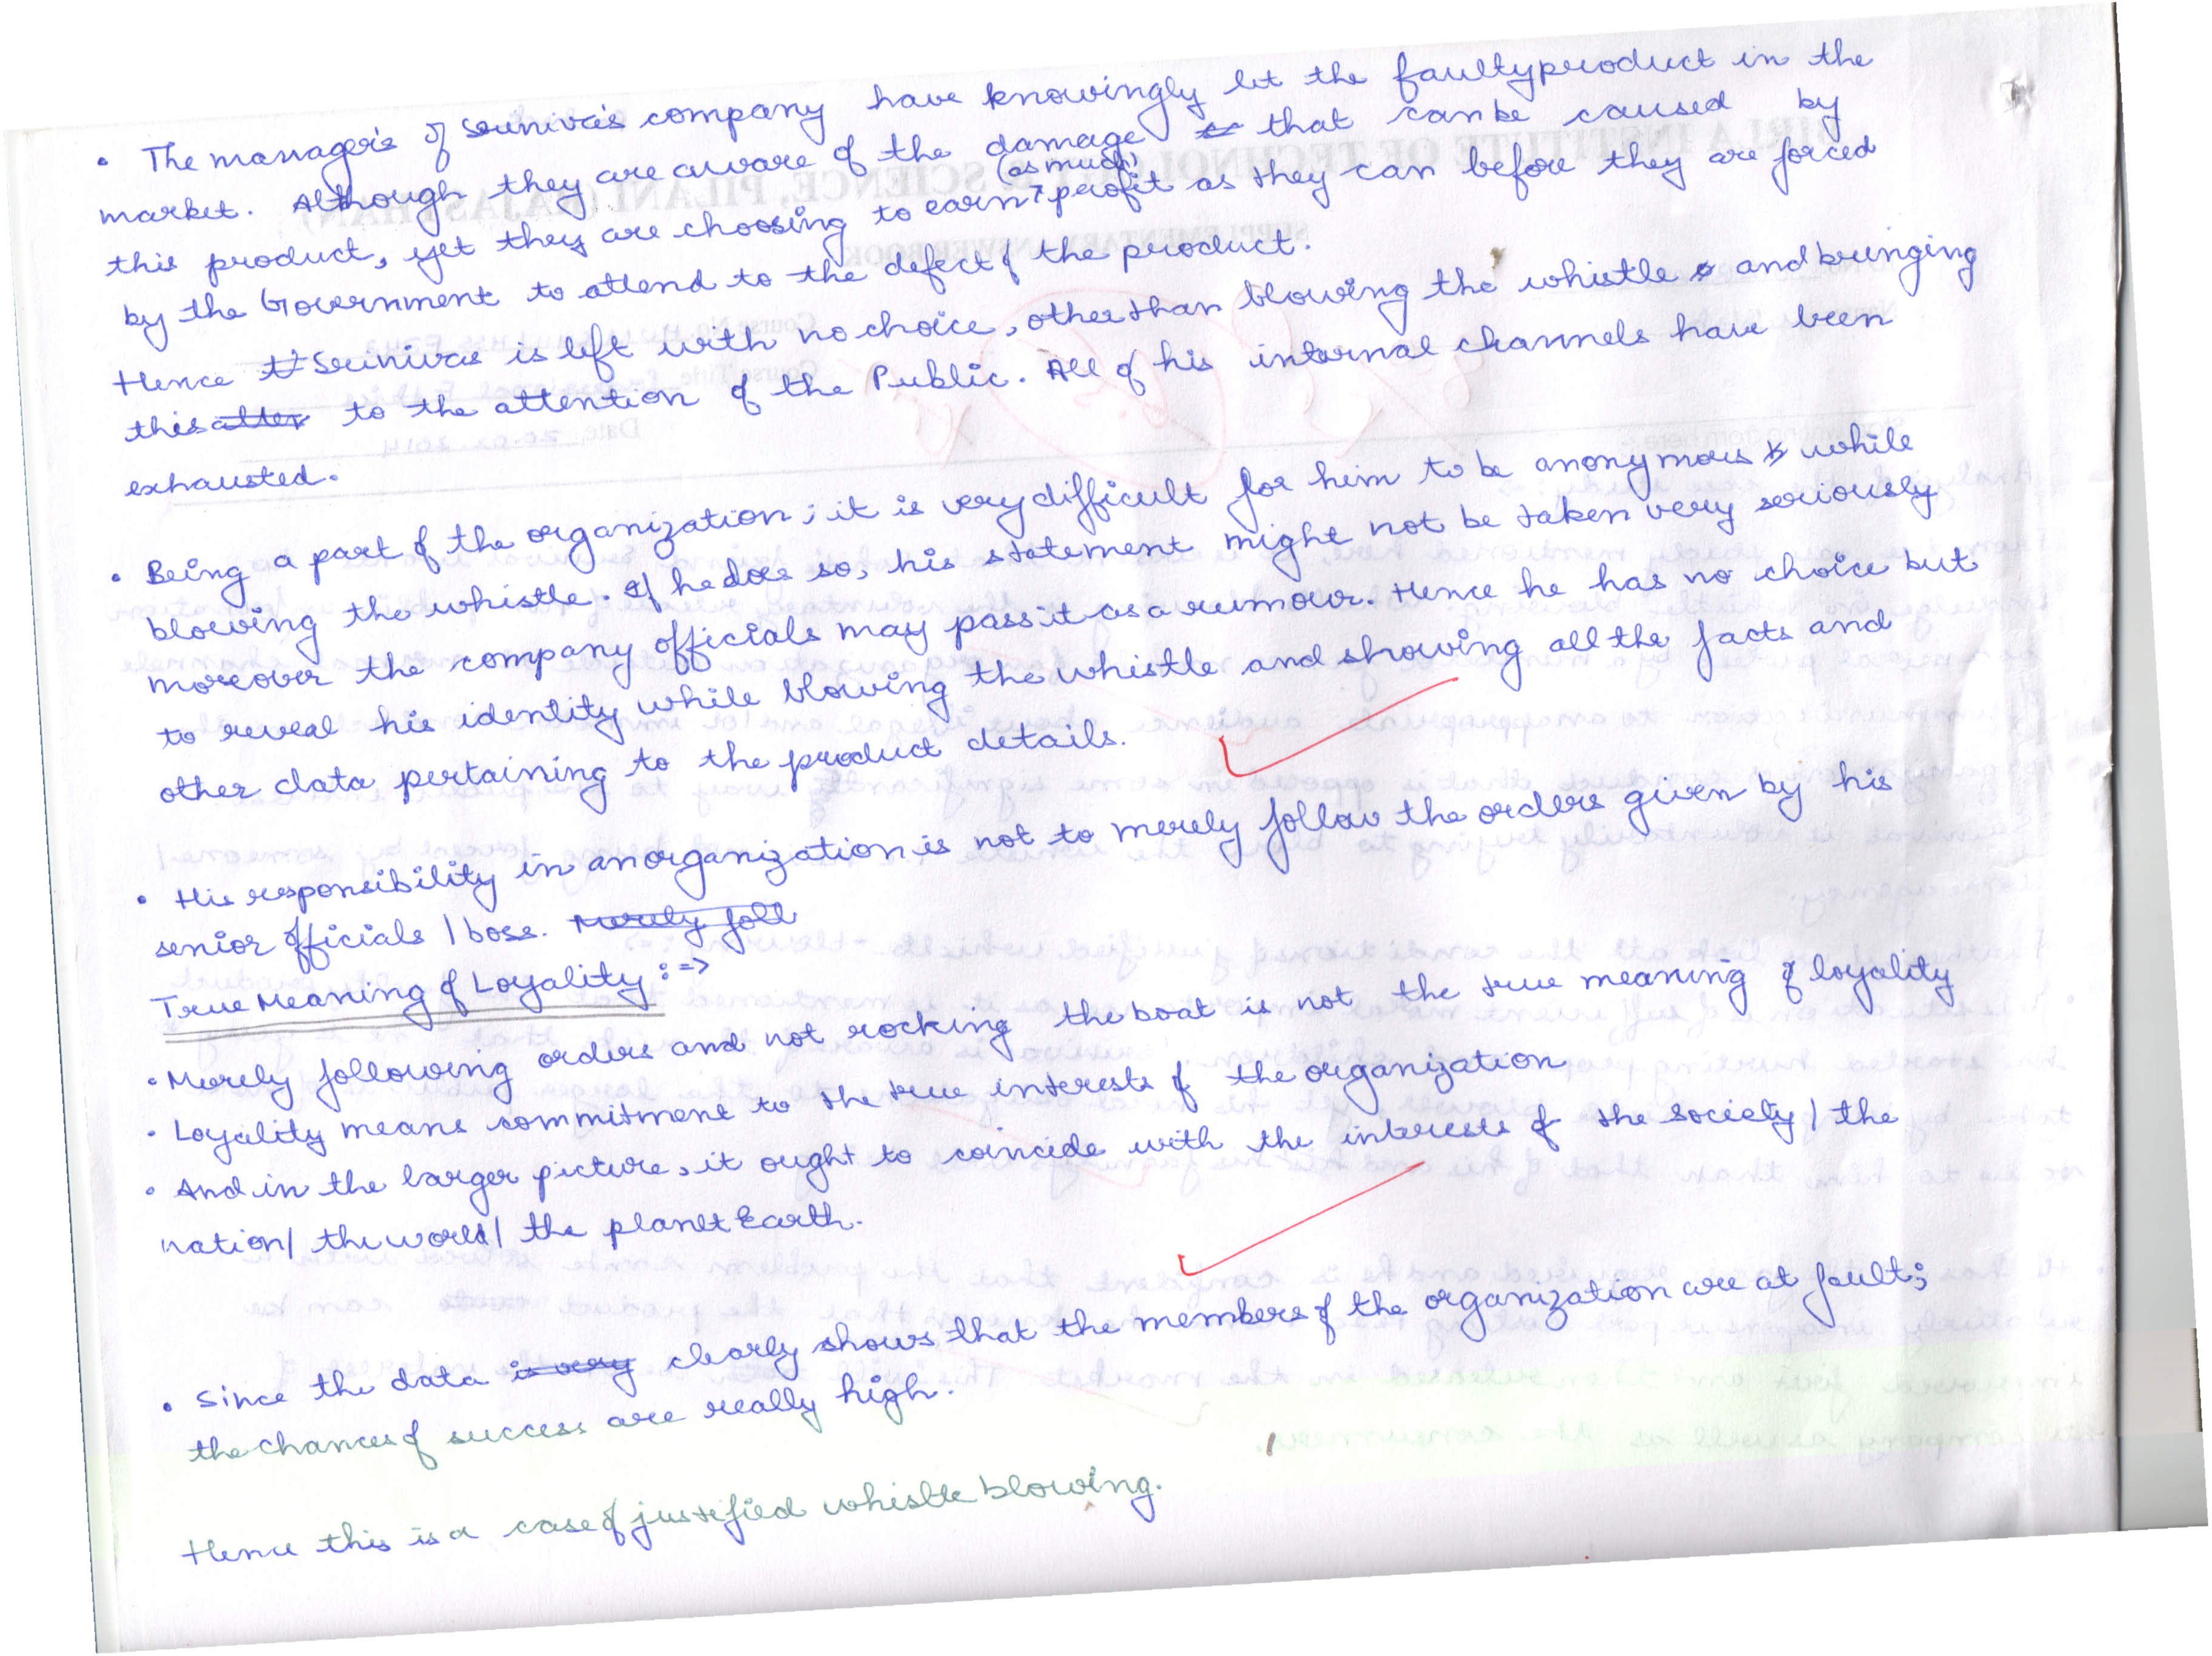 • The manager's of Srinivas's company have knowingly let the faulty product in the
market. Although they are aware of the damage that can be caused by
this product, yet they are choosing to earn (as much) profit as they can before they are forced
by the Government to attend to the defect of the product.
Hence Srinivas is left with no choice, other than blowing the whistle and bringing
this to the attention of the Public. All of his internal channels have been
exhausted.
• Being a part of the organization; it is very difficult for him to be anonymous while
blowing the whistle. If he does so, his statement might not be taken very seriously
moreover the company officials may pass it as a rumour. Hence he has no choice but
to reveal his identity while blowing the whistle and showing all the facts and
other data pertaining to the product details.
• His responsibility in an organization is not to merely follow the orders given by his
senior officials / boss. Merely foll
True Meaning of Loyality :=>
• Merely following orders and not rocking the boat is not the true meaning of loyality
• Loyality means commitment to the true interests of the organization
• And in the larger picture, it ought to coincide with the interests of the society / the
nation / the world / the planet Earth.
• Since the data is very clearly shows that the members of the organization are at fault;
the chances of success are really high.
Hence this is a case of justified whistle blowing.